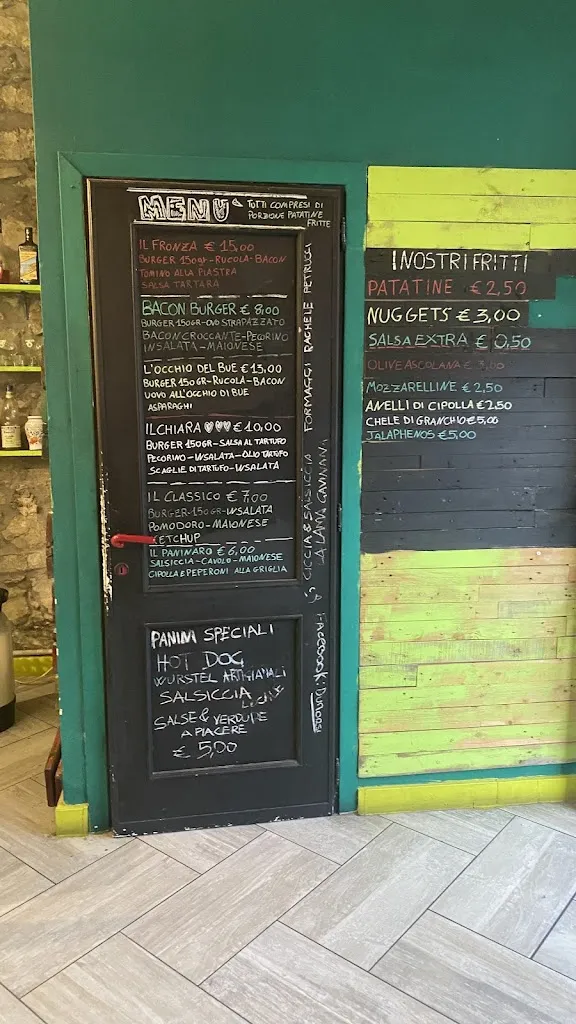 MENU
TUTTI COMPRESI DI
PORZIONE PATATINE
FRITTE
IL FRONZA € 15,00
BURGER 150gr-RUCOLA-BACON
TOMINO ALLA PIASTRA
SALSA TARTARA
BACON BURGER € 8,00
BURGER 150GR-OVO STRAPAZZATO
BACON CROCCANTE-PECORINO
INSALATA-MAIONESE
L'OCCHIO DEL BUE € 13,00
BURGER 150GR-RUCOLA-BACON
UOVO ALL'OCCHIO DI BUE
ASPARAGHI
IL CHIARA ♥♥♥ € 10,00
BURGER 150GR-SALSA AL TARTUFO
PECORINO-INSALATA-OLIO TARTUFO
SCAGLIE DI TARTUFO-INSALATA
IL CLASSICO € 7,00
BURGER-150GR-INSALATA
POMODORO-MAIONESE
KETCHUP
IL PANINARO € 6,00
SALSICCIA-CAVOLO-MAIONESE
CIPOLLA E PEPERONI ALLA GRIGLIA
PANINI SPECIALI
HOT DOG
WURSTEL ARTIGIANALI
SALSICCIA
SALSE & VERDURE
A PIACERE
€ 5,00
CICCIA & SALSICCIA
FORMAGGI RACHELE PETRUCCI
FACEBOOK:
I NOSTRI FRITTI
PATATINE € 2,50
NUGGETS € 3,00
SALSA EXTRA € 0,50
OLIVE ASCOLANA € 3,00
MOZZARELLINE € 2,50
ANELLI DI CIPOLLA € 2,50
CHELE DI GRANCHIO € 5,00
JALAPHENOS € 5,00